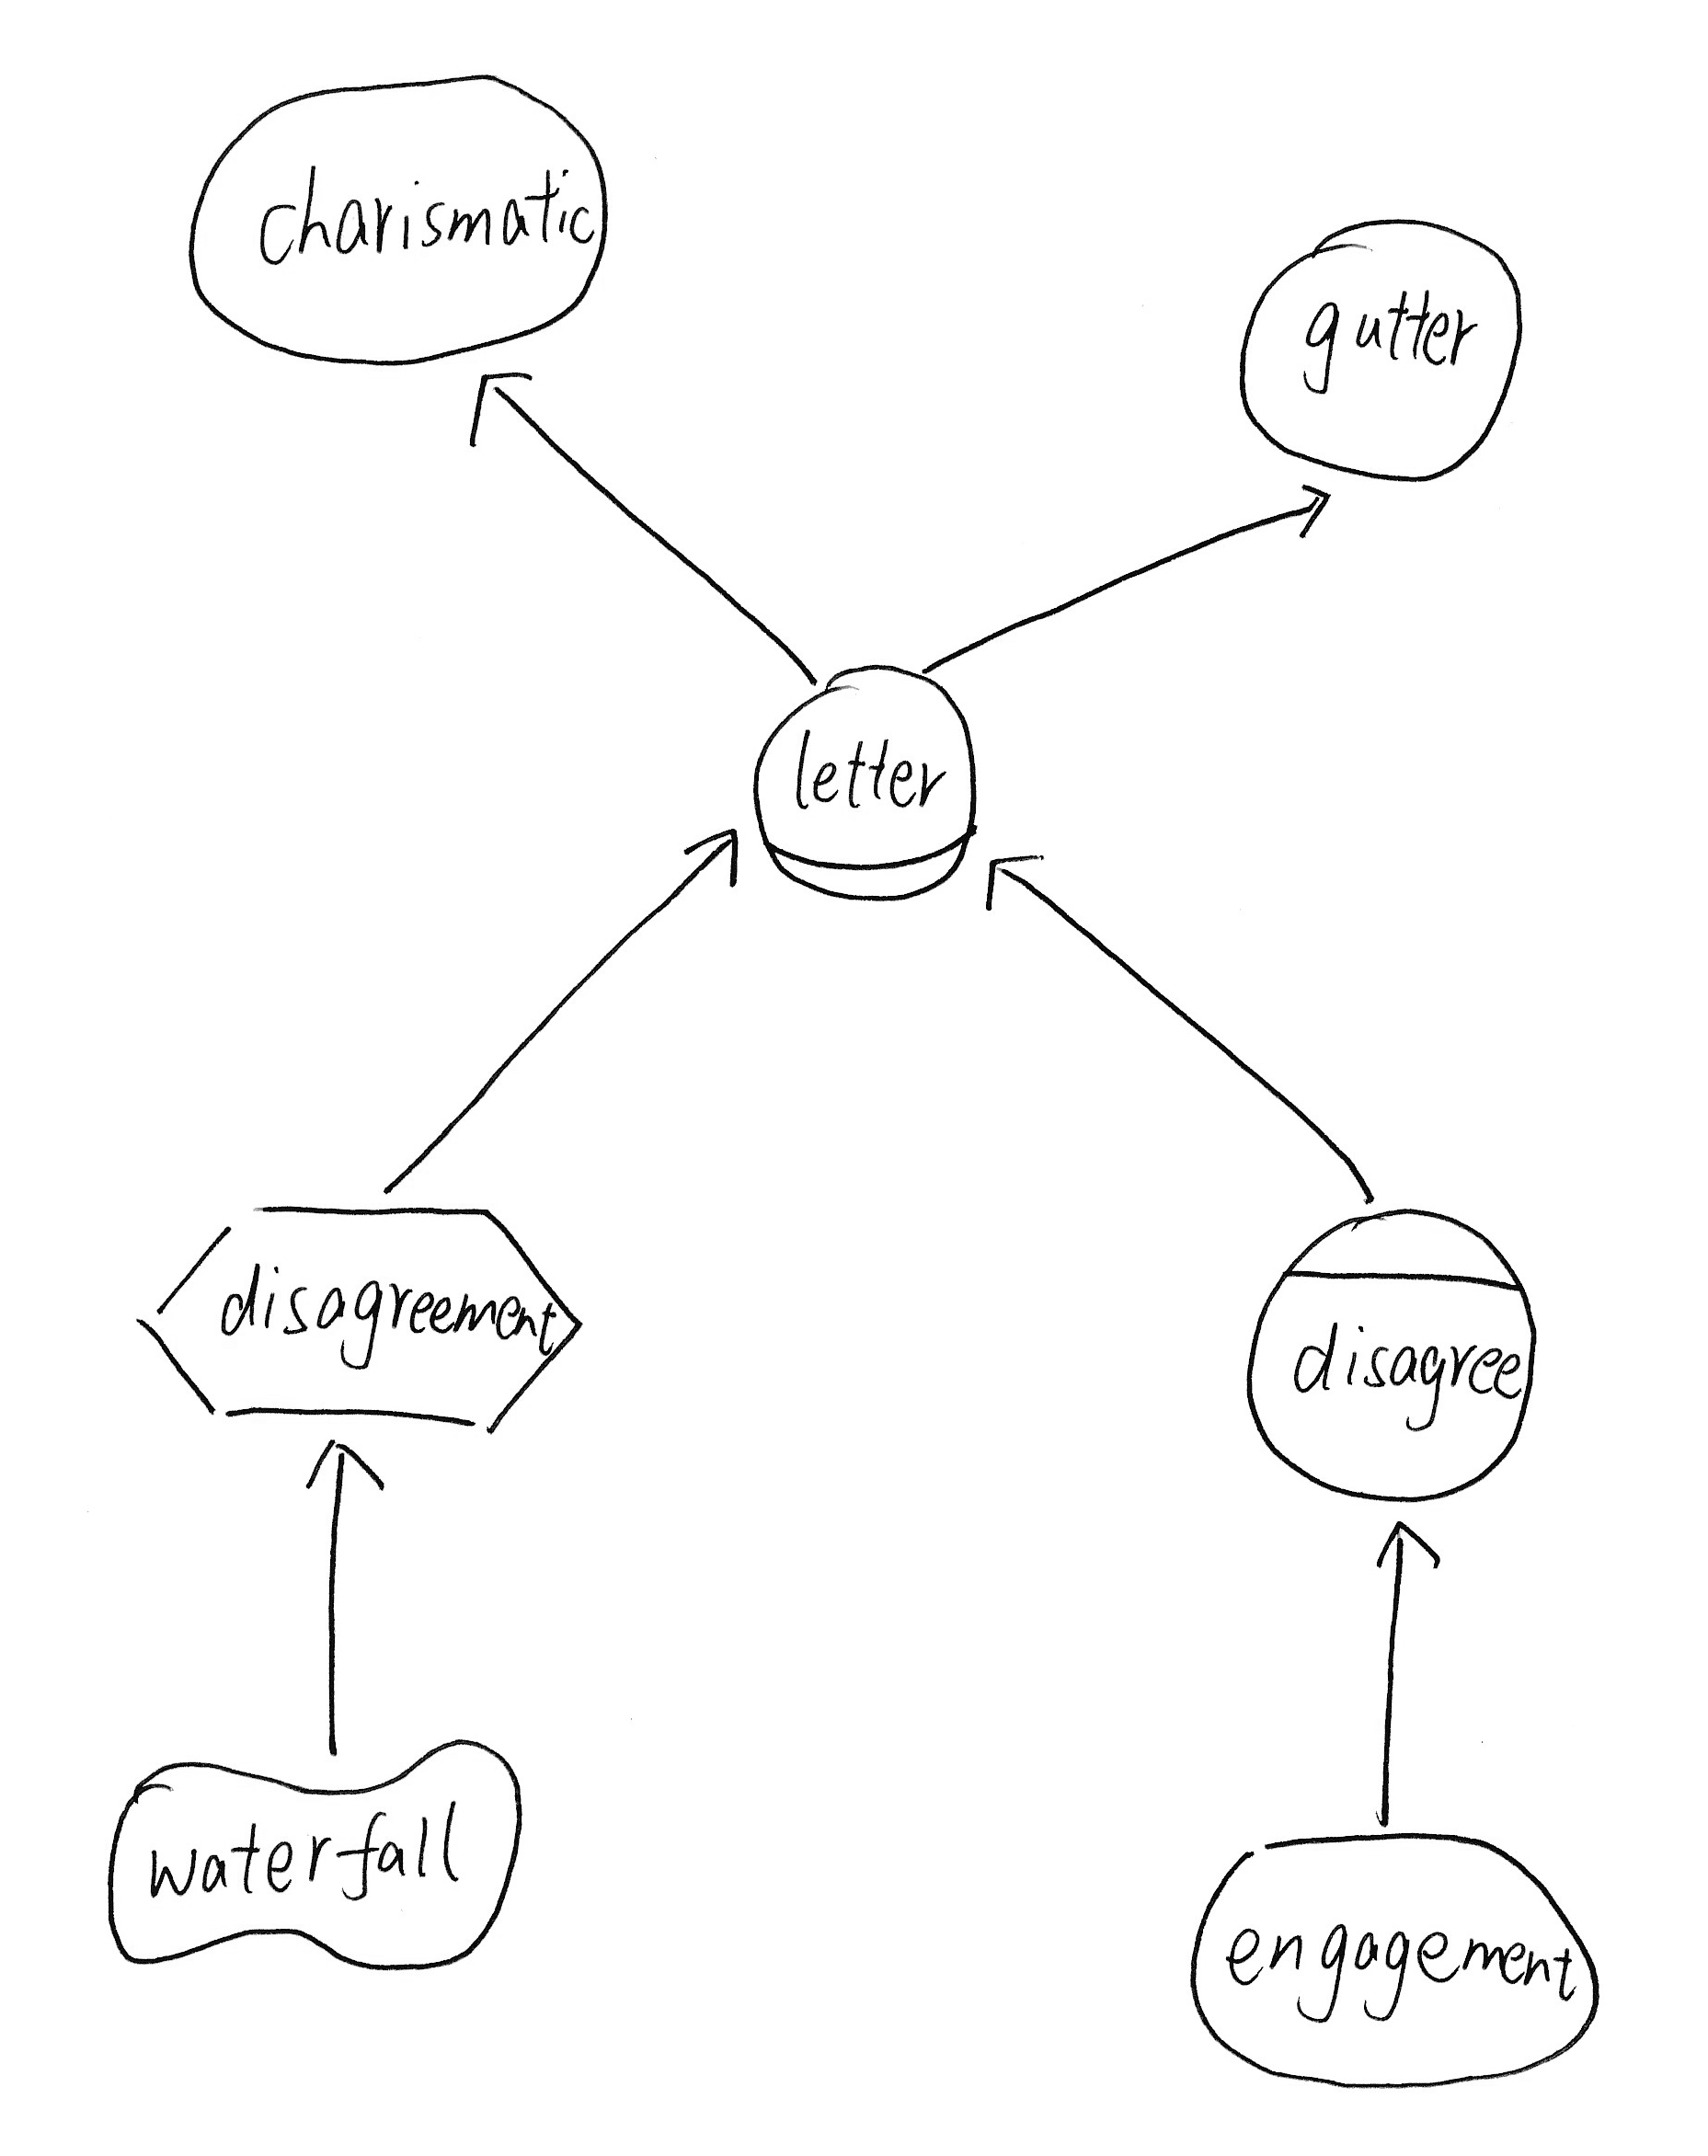 charismatic
gutter
letter
disagreement
disagree
waterfall
engagement